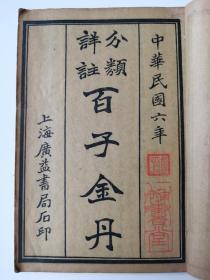 中華民國六年
分類
詳註
百子金丹
上海廣益書局石印